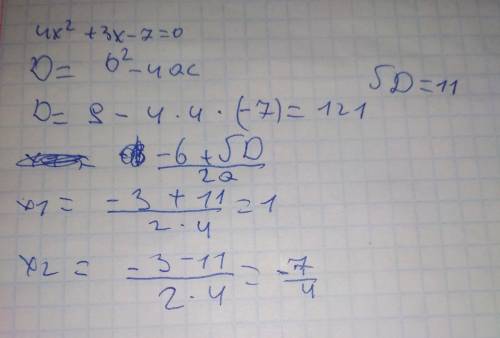 4x² + 3x - 7 = 0
D = b² - 4ac
√D = 11
D = 9 - 4 · 4 · (-7) = 121
-b + √D / 2a
x1 = -3 + 11 / 2 · 4 = 1
x2 = -3 - 11 / 2 · 4 = -7 / 4